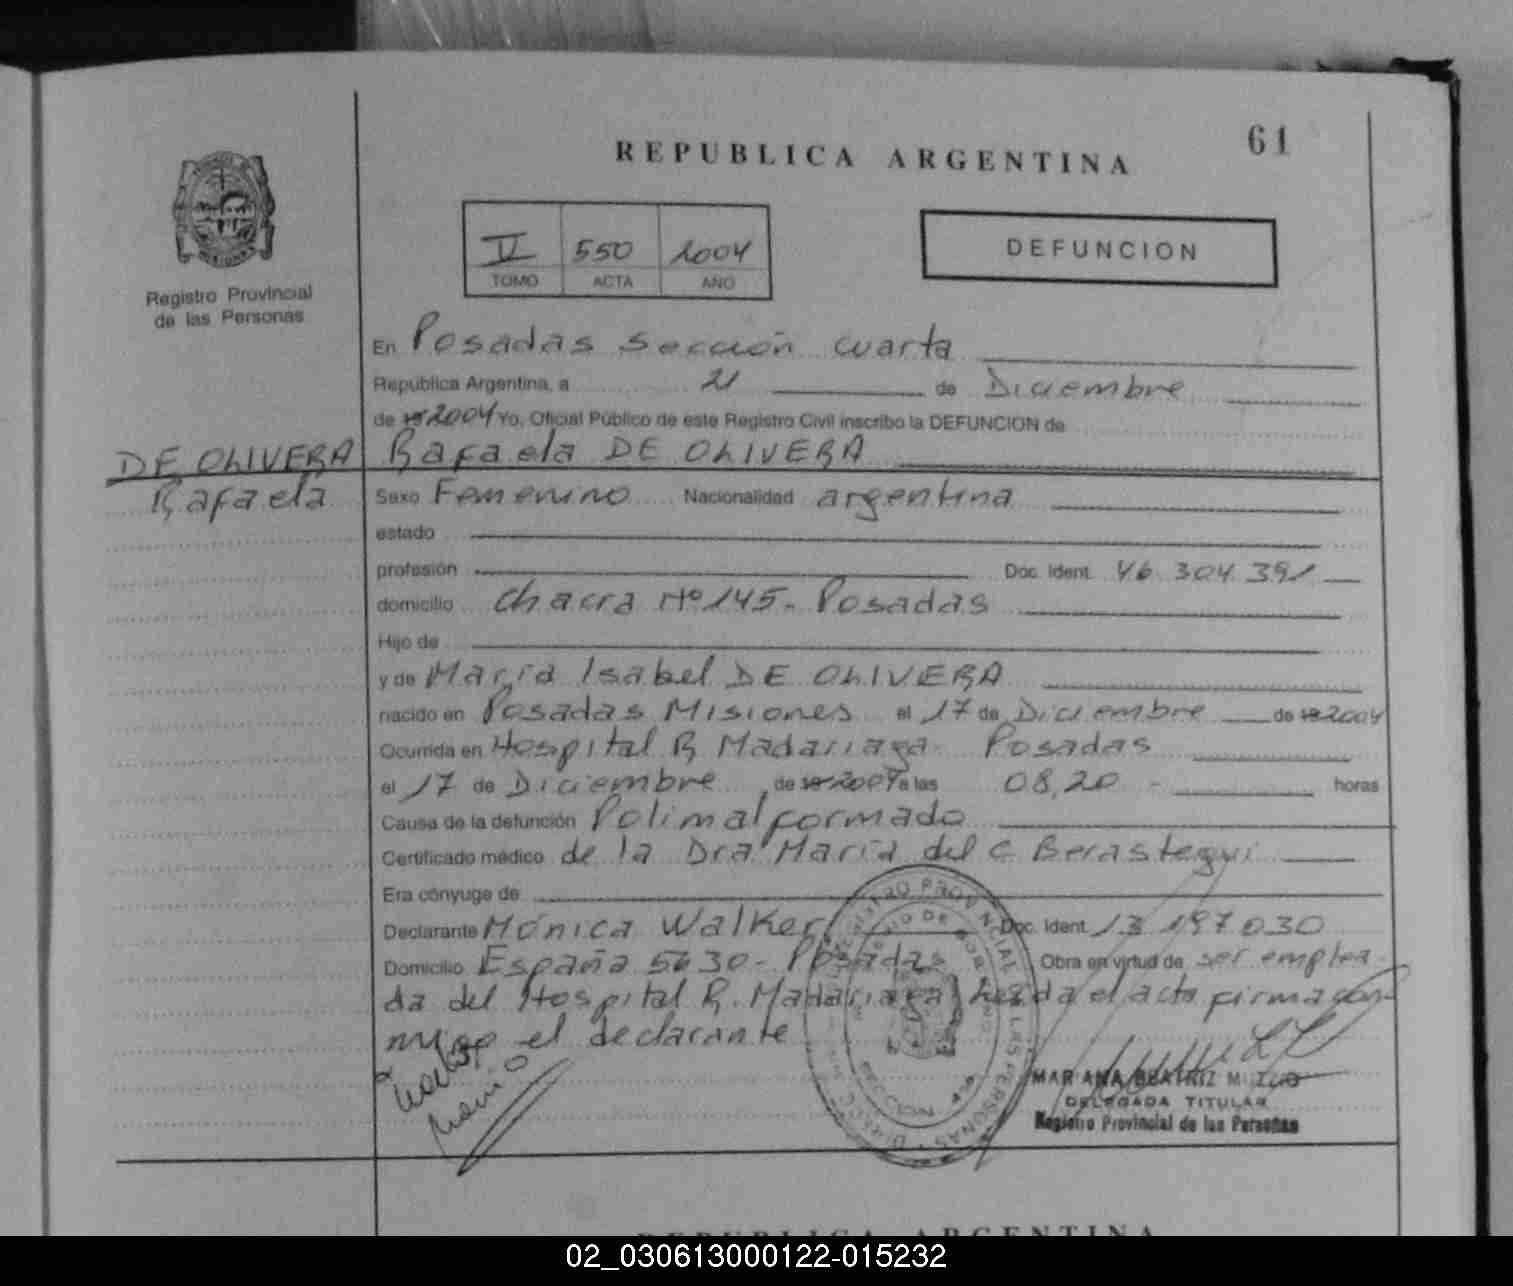 61
REPUBLICA ARGENTINA
V 550 2004
TOMO ACTA AÑO
DEFUNCION
Registro Provincial
de las Personas
En Posadas Sección cuarta
República Argentina, a 21 de Diciembre
de 19 2004 Yo, Oficial Público de este Registro Civil inscribo la DEFUNCION de
DE OLIVERA
Rafaela
Rafaela DE OLIVERA
Sexo Femenino Nacionalidad argentina
estado
profesión Doc. Ident. 46.304.391
domicilio Chacra Nº 145- Posadas
Hijo de
y de María Isabel DE OLIVERA
nacido en Posadas Misiones el 17 de Diciembre de 19 2004
Ocurrida en Hospital R Madariaga Posadas
el 17 de Diciembre de 19 2004 a las 08,20 - horas
Causa de la defunción Polimalformado
Certificado médico de la Dra María del C Berastegui
Era cónyuge de
Declarante Mónica Walker Doc. Ident. 13 197 030
Domicilio España 5630- Posadas Obra en virtud de ser emplea-
da del Hospital R. Madariaga leída el acta firma con-
migo el declarante
DELEGADA TITULAR
Registro Provincial de las Personas
REPUBLICA ARGENTINA
02_030613000122-015232